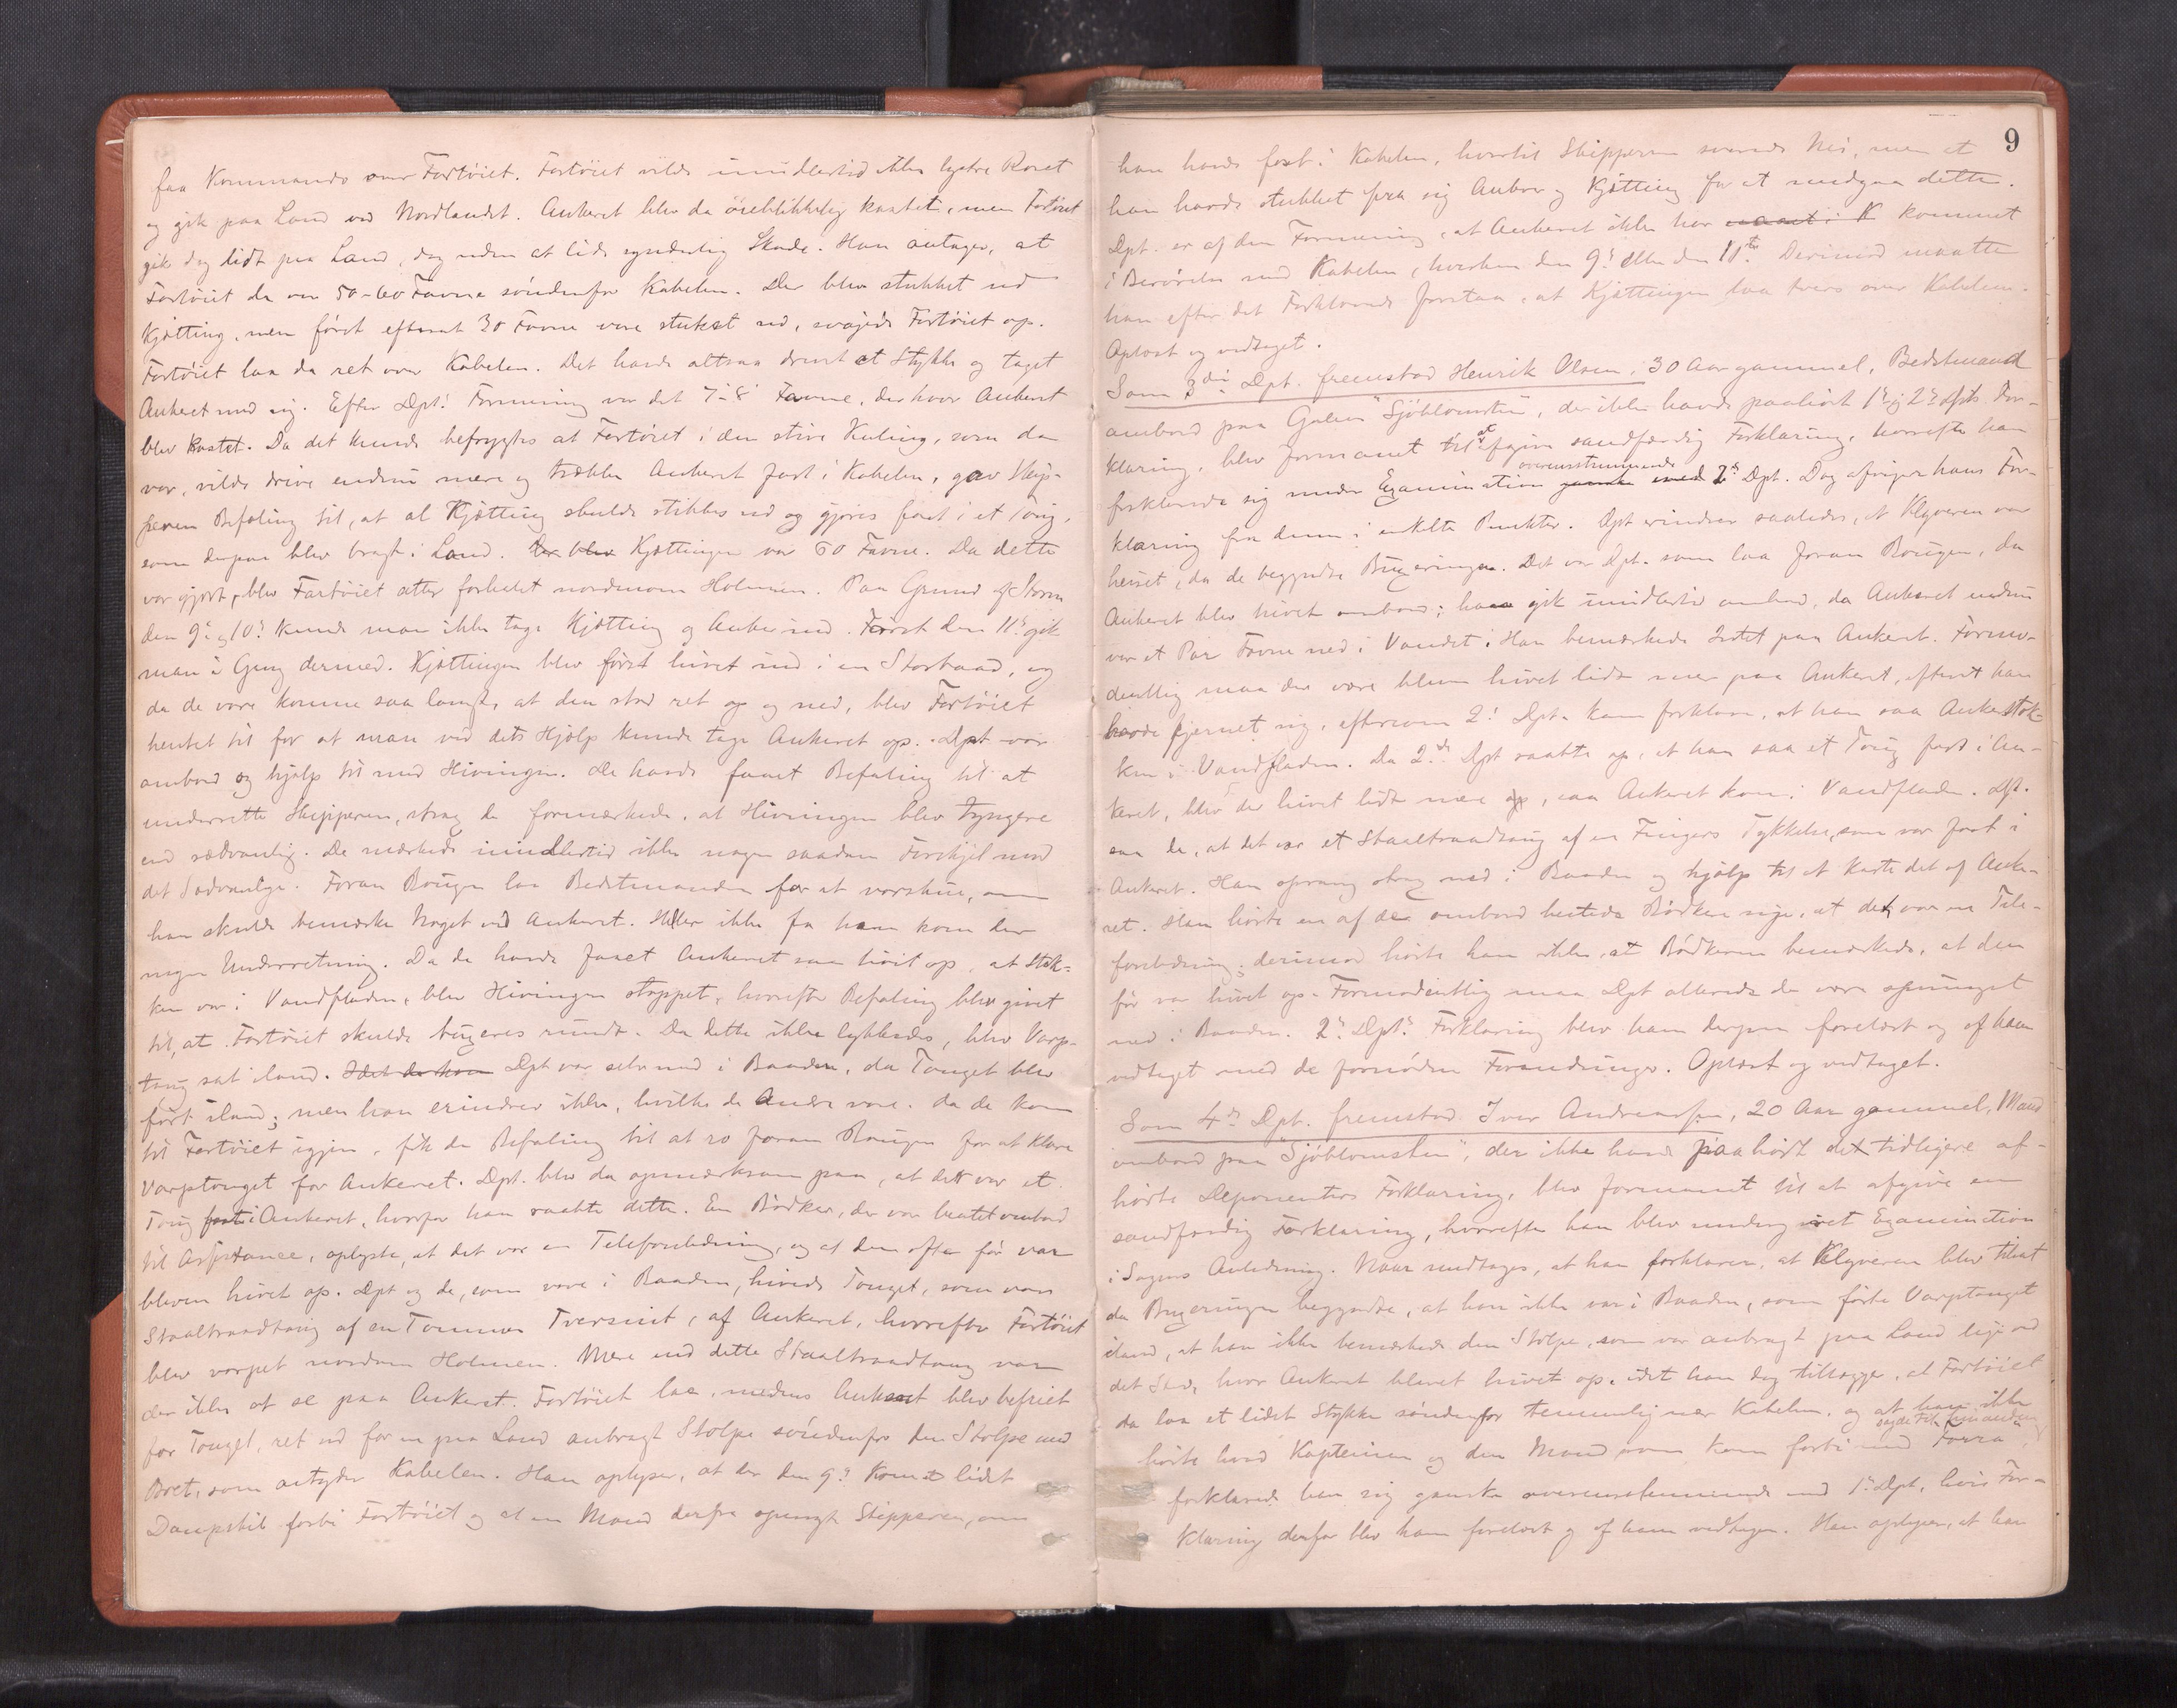 faa Kommando over Fartöiet. Fartöiet vilde imidlertid ikke lystre Roret
og gik paa Land ved Nordlandet. Ankeret blev da öieblikkelig kastet, men Fartöiet
gik dog lidt paa Land, dog uden at lide synderlig Skade. Han antager, at
Fartöiet da var 50-60 Favne söndenfor Kabelen. Der blev stukket ud
Kjætting, men först efterat 30 Favne vare stukket ud, svajede Fartöiet op.
Fartöiet laa da ret over Kabelen. Det havde altsaa drevet et Stykke og taget
Ankeret med sig. Efter Dpt. Formening var det 7 à 8 Favne, der hvor Ankeret
blev kastet. Da det kunde befrygtes at Fartöiet i den stive Kuling, som da
var, vilde drive endnu mere og trække Ankeret fast i Kabelen, gav Skip-
peren Befaling til, at al Kjætting skulde stikkes ud og gjöres fast i et Toug,
som derpaa blev bragt i Land. Der blev Kjættingen var 60 Favne. Da dette
var gjort, blev Fartöiet atter forhalet nordenom Holmen. Paa Grund af Storm
den 9de og 10de kunde man ikke tage Kjætting og Anker ind. Först den 11te gik
man i Gang dermed. Kjættingen blev först hivet ind i en Storbaad, og
da de vare komne saa langt, at den stod ret op og ned, blev Fartöiet
hentet til for at man ved dets Hjælp kunde tage Ankeret op. Dpt var
ombord og hjalp til med Hivingen. De havde faaet Befaling til at
underrette Skipperen, strax de formærkede, at Hivingen blev tyngere
end sædvanlig. De mærkede imidlertid ikke nogen saadan Forskjel med
det Sædvanlige. Foran Bougen laa Bedstmanden for at varskue, om
han skulde bemærke Noget ved Ankeret. Heller ikke fra ham kom der
nogen Underretning. Da de havde faaet Ankeret saa höit op, at Stok-
ken var i Vandfladen, blev Hivingen stoppet, hvorefter Befaling blev givet
til, at Fartöiet skulde buxeres rundt. Da dette ikke lykkedes, blev Varp-
toug sat iland. Idet de kom Dpt var selv med i Baaden, da Touget blev
fört iland; men han erindrer ikke, hvilke de Andre vare. Da de kom
til Fartöiet igjen, fik de Befaling til at ro foran Bougen for at klare
Varptouget for Ankeret. Dpt. blev da opmærksom paa, at der var et
Toug fast i Ankeret, hvorfor han raabte dette. En Bödker, der var leiet ombord
til Assistance, oplyste, at det var en Telefonledning, og at den ofte för var
bleven hivet op. Dpt og de, som vare i Baaden, hivede Touget, som var
Staaltraadtoug af en Tommes Tversnit, af Ankeret, hvorefter Fartöiet
blev varpet nordom Holmen. Mere end dette Staaltraadtoug var
der ikke at se paa Ankeret. Fartöiet laa, medens Ankeret blev befriet
for Touget, ret ud for en paa Land anbragt Stolpe söndenfor den Stolpe med
Bret, som antyder Kabelen. Han oplyser, at der den 9de kom et lidet
Dampskib forbi Fartöiet og at en Mand derfra spurgte Skipperen, om
9
han havde fast i Kabelen, hvortil Skipperen svarede Nei, men at
han havde stukket fra sig Anker og Kjætting for at undgaa dette.
Dpt. er af den Formening, at Ankeret ikke har været i K kommet
i Beröring med Kabelen, hverken den 9de eller den 11te. Derimod maatte
han efter det Forklarede forstaa, at Kjættingen laa tvers over Kabelen.
Oplæst og vedtaget.
Som 3die Dpt. fremstod Henrik Olsen, 30 Aar gammel, Bedstmand
ombord paa Galeas "Sjöblomsten", der ikke havde paahört 1ste og 2den Dpts For-
klaring, blev formanet til at afgive sandfærdig Forklaring, hvorefter han
forklarede sig under Examination overensstemmende ganske med 2den Dpt. Dog afviger hans For-
klaring fra dennes i enkelte Punkter. Dpt erindrer saaledes, at Klyveren var
heiset, da de begyndte Buxeringen. Det var Dpt. som laa foran Bougen, da
Ankeret blev hivet ombord; han gik imidlertid ombord, da Ankeret endnu
var et Par Favne ned i Vandet. Han bemærkede Intet paa Ankeret. Formo-
dentlig maa der være bleven hivet lidt mer paa Ankeret, efterat han
havde fjernet sig, eftersom 2den Dpt. kan forklare, at han saa Ankerstok-
ken i Vandfladen. Da 2den Dpt raabte op, at han saa et Toug fast i An-
keret, blev der hivet lidt mere op, saa Ankeret kom i Vandfladen. Dpt.
saa da, at det var et Staaltraadtoug af en Fingers Tykkelse, som var fast i
Ankeret. Han sprang strax ned i Baaden og hjalp til at kaste det af Anke-
ret. Han hörte en af de ombord leiede Bödkere sige, at det var en Tele-
fonledning; derimod hörte han ikke, at Bödkeren bemærkede, at den
för var hivet op. Formodentlig maa Dpt allerede da være sprunget
ned i Baaden. 2den Dpts Forklaring blev ham derpaa forelæst og af ham
vedtaget med de fornödne Forandringer. Oplæst og vedtaget.
Som 4de Dpt. fremstod Iver Andreassen, 20 Aar gammel, Mand
ombord paa "Sjöblomsten", der ikke havde paahört det tidligere af-
hörte Deponenters Forklaring, blev formanet til at afgive en
sandfærdig Forklaring, hvorefter han blev undergivet Examination
i Sagens Anledning. Naar undtages, at han forklarer, at Klyveren blev tilsat
da Buxeringen begyndte, at han ikke var i Baaden, som förte Varptouget
iland, at han ikke bemærkede den Stolpe, som var anbragt paa Land lige ved
det Sted, hvor Ankeret blevet hivet op, idet han dog tillægger, at Fartöiet
da laa et lidet Stykke söndenfor temmelig nær Kabelen, og at han ikke
hörte hvad Kapteinen og den Mand som kom forbi med Farra sagde til hinanden,
forklarede han sig ganske overensstemmende med 1ste Dpt, hvis For-
klaring derfor blev ham forelæst og af ham vedtagen. Han oplyser, at han